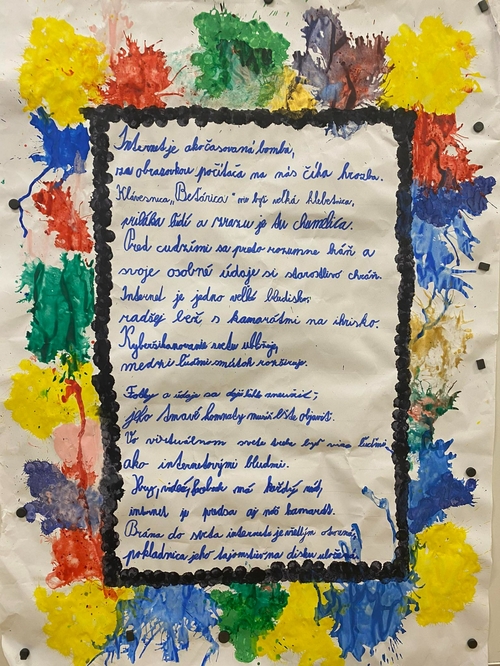 Internet je ako časovaná bomba,
za obrazovkou počítača na nás číha hrozba.
Klávesnica „Betárica" vie byť veľká klebetnica,
priláka ľudí a zrazu je tu chumelica.
Pred cudzími sa preto rozumne bráň a
svoje osobné údaje si starostlivo chráň.
Internet je jedno veľké bludisko,
radšej bež s kamarátmi na ihrisko.
Kyberšikanovanie veľa ubližuje,
medzi ľuďmi smútok rozširuje.
Fotky a údaje sa dajú zneužiť,
jeho tmavé komnaty musíš objaviť.
Vo virtuálnom svete treba byť viac ľuďmi,
ako internetovými bludmi.
Hry, videá, má každý rád,
internet je predsa aj náš kamarát.
Brána do sveta internetu je otvorená,
pokladnica jeho tajomstiev na disku uložená.